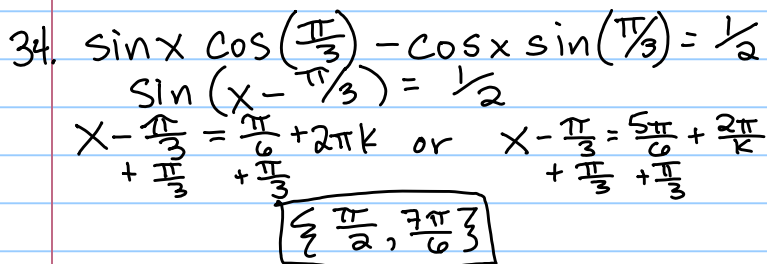 34. sinx cos(π/3) - cosx sin(π/3) = 1/2
sin(x - π/3) = 1/2
x - π/3 = π/6 + 2πk or x - π/3 = 5π/6 + 2π/k
+ π/3 + π/3 + π/3 + π/3
{π/2, 7π/6}